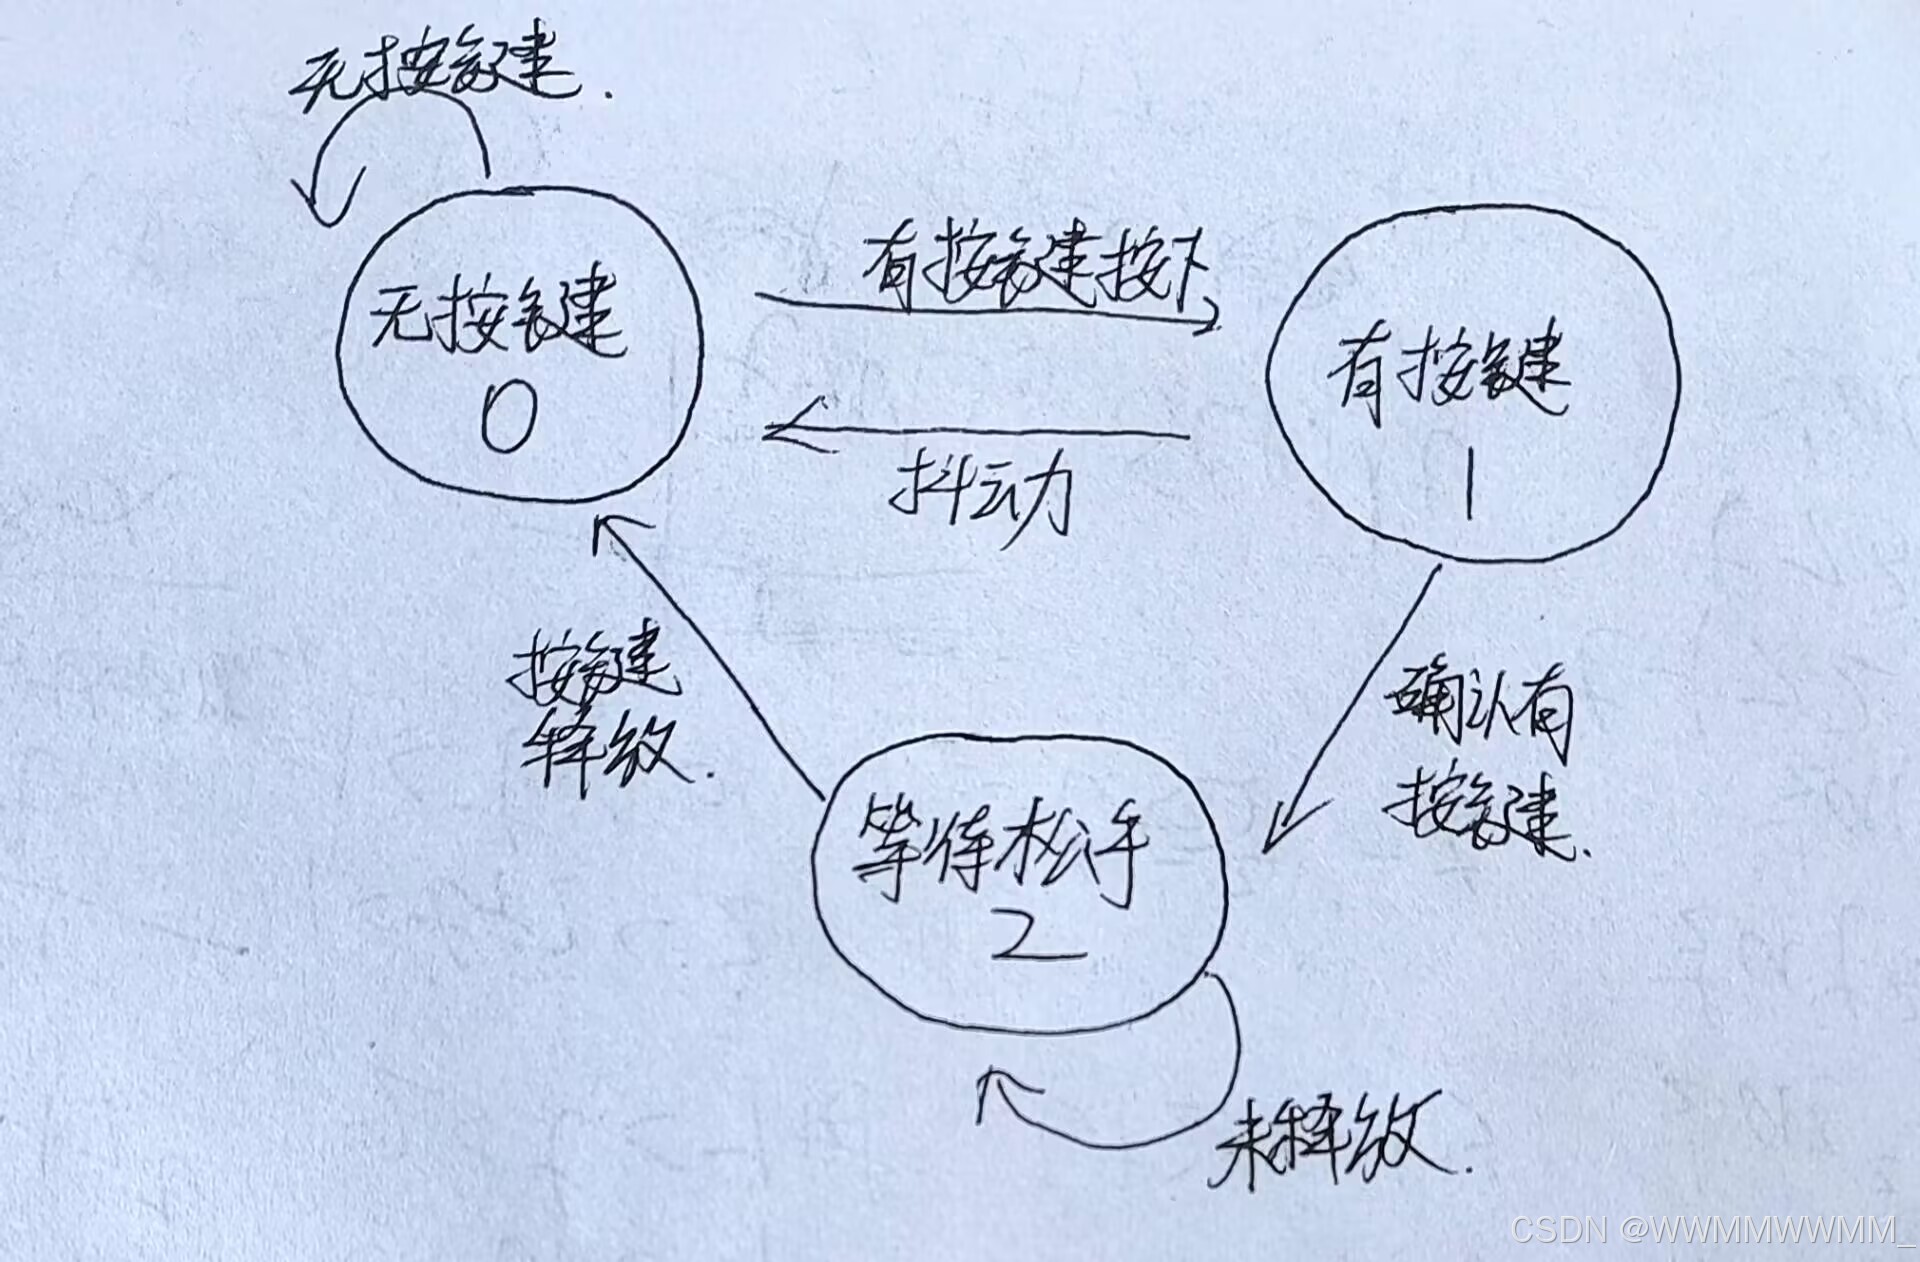 无按键.
有按键按下
无按键
0
有按键
1
抖动
按键
释放.
确认有
按键.
等待松手
2
未释放.
CSDN @WWMMWWMM_